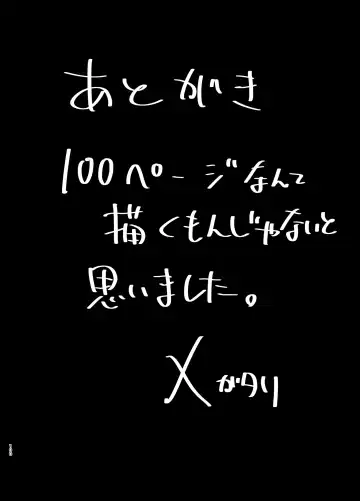 あとがき
100ページなんて
描くもんじゃないと
思いました。